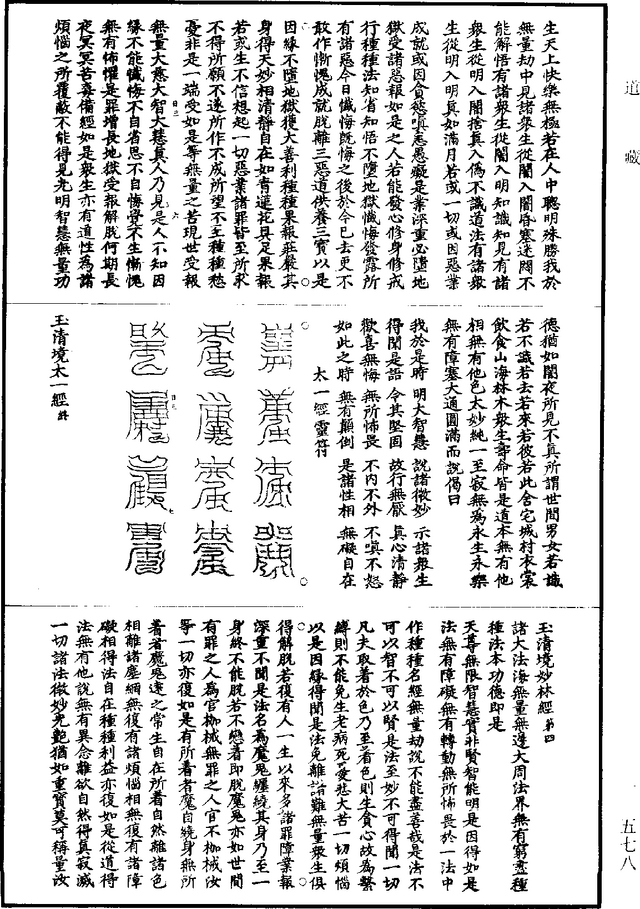 道藏
生天上快樂無極若在人中聰明殊勝我於
無量劫中見諸衆生從闇入闇昏塞迷悶不
能解悟有諸衆生從闇入明知識知見有諸
衆生從明入闇捨真入偽不識道法有諸衆
生從明入明真如滿月若或一切或因惡業
成就或因貪慾嗔恚愚癡是業深重必墮地
獄受諸惡報如是之人若能發心修身修戒
行種種法知省知悟不墮地獄懺悔發露所
有諸惡今日懺悔既悔之後於今已去更不
敢作慚愧成就脫離三惡道供養三寶以是
因緣不墮地獄獲大善利種種果報莊嚴其
身得天妙相清靜自在如青蓮花具足果報
若或生不信想起一切惡業諸罪皆至所求
不得所願不遂所作不成所望不至種種愁
憂非是一端受如是等無量之苦現世受報
無量大慈大智大慧真人乃見是人不知因
緣不能懺悔不自省思不自悔覺不生慚愧
無有怖懼是罪增長地獄受報解脫何期長
夜冥冥苦毒備經如是衆生亦有道性為諸
煩惱之所覆蔽不能得見光明智慧無量功
德猶如闇夜所見不真所謂世間男女若識
若不識若去若來若彼若此舍宅城村衣裳
飲食山海林木衆生壽命皆是道本無有他
相無有他色太妙純一至寂無為永生永樂
無有障塞大通圓滿而說偈曰
我於是時 明大智慧 說諸微妙 示諸衆生
得聞是語 令其堅固 故行無厭 真心清靜
歡喜無悔 無所怖畏 不內不外 不嗔不怒
如此之時 無有顛倒 是諸性相 無礙自在
太一經靈符
玉清境太一經終
玉清境妙林經第四
諸大法海無量無邊大周法界無有窮盡種
種法本功德即是
天尊無限智慧實非賢智能明是因得如是
法無有障礙無有轉動無所怖畏於一法中
作種種名經無量劫說不能盡善哉是法不
可以智不可以賢是法至妙不可得聞一切
凡夫取著於色乃至著色則生貪心故為繫
縛則不能免生老病死憂悲大苦一切煩惱
以是因緣得聞是法免離諸難無量衆生俱
得解脫若復有人一生以來多諸罪障業報
深重不聞是法名為魔鬼纏繞其身乃至一
身終不能脫若不戀著即脫魔鬼亦如世間
有罪之人為官枷械無罪之人官不枷械汝
等一切亦復如是有所著者魔自繞身無所
著者魔鬼遠之常生自在所著自然離諸色
相離諸塵網無復有諸煩惱相無復有諸障
礙相得法自在種種利益亦復如是從道得
法無有他說無有異念離欲自然得真寂滅
一切諸法微妙光艷猶如重寶莫可稱量汝
五七八